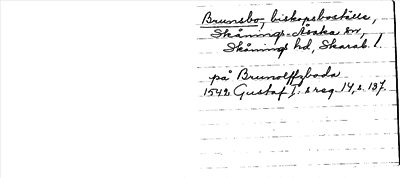 Brunsbo, biskopsboställe,
Skånings-Åsaka sn,
Skånings hd, Skarab. l.
på Brunolffzboda
1542 Gustaf I:s reg. 14, s. 137.